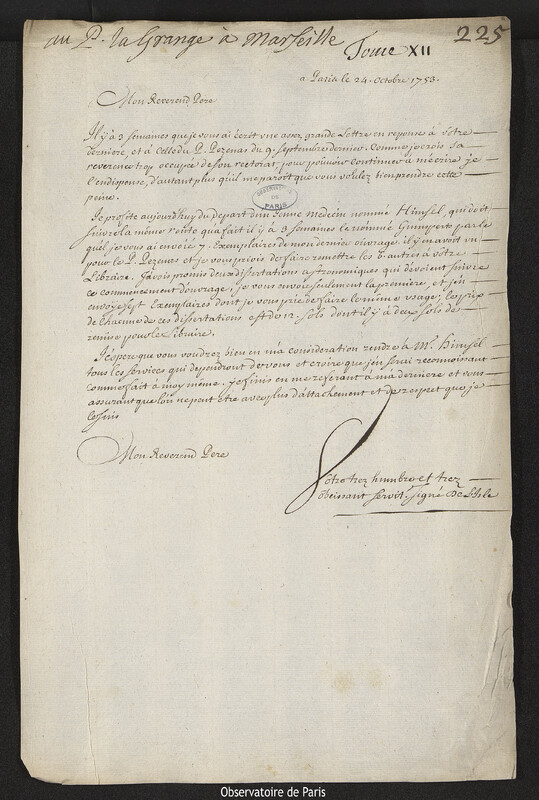 au P. la Grange à Marseille
Tome XII
225
a Paris le 24. octobre 1753.
Mon Reverend Pere
Il y à 3 semaines que je vous ai ecrit une assez grande Lettre en reponse à vôtre
derniere, et à celle du P. Pezenas du 9. septembre dernier. Comme je crois sa
reverence trop occupée de son rectorat, pour pouvoir continuer à m'ecrire je
l'en dispense, d'autant plus qu'il me paroit que vous voulez bien prendre cette
peine.
OBSERVATOIRE DE PARIS
Je profite aujourdhuy du depart d'un Jeune medecin nommé Himsel, qui doit
suivre la même route qu'a fait il y à 3 semaines le nommé par le
quel je vous ai envoié 7. Exemplaires de mon dernier ouvrage. il y en avoit un
pour le P. Pezenas et je vous priois de faire remettre les 6 autres à vôtre
Libraire. J'avois promis deux dissertations astronomiques qui devoient suivre
ce commencement d'ouvrage; je vous envoie seulement la premiere, et j'en
envoye sept Exemplaires dont je vous prie de faire le même usage; Le prix
de chacune de ces dissertations est de 12. sols dont il y à deux sols de
remise pour le Libraire.
J'espere que vous voudrez bien en ma consideration rendre à Mr. Himsel
tous les services qui dependront de vous et croire que j'en serai reconnoissant
comme fait à moy même. je finis en me referant à ma derniere et vous
assurant que l'on ne peut etre avec plus d'attachement et de respect que je
le suis
Mon Reverend Pere
Vôtre trez humble et trez
obeissant servit. signé De L'Isle
Observatoire de Paris